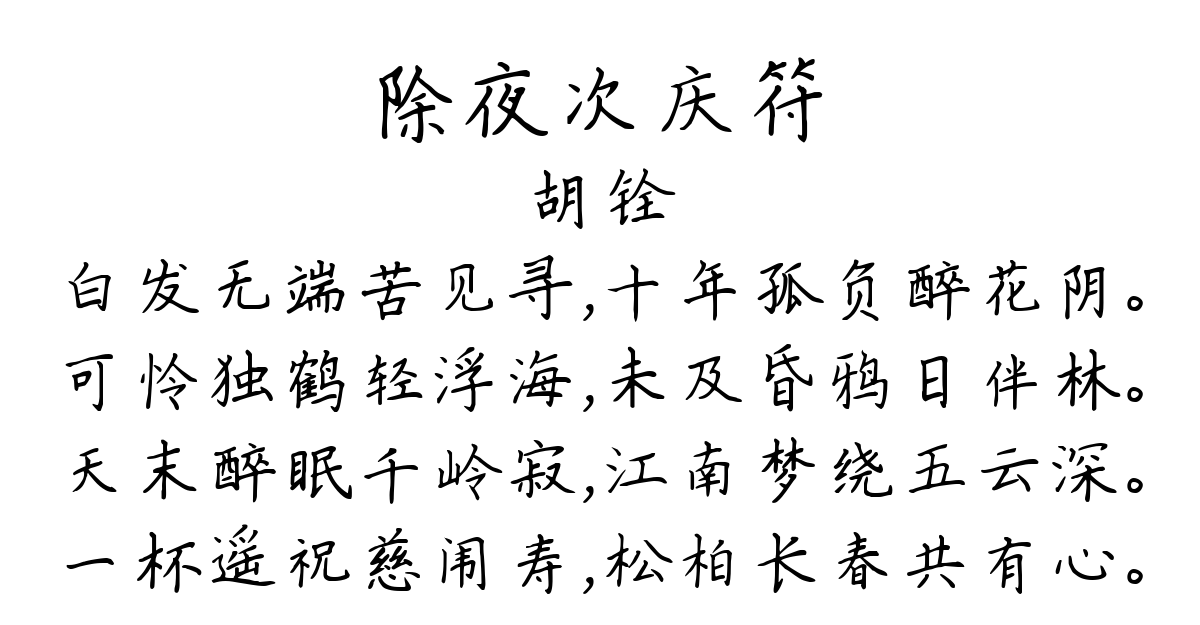 除夜次庆符
胡铨
白发无端苦见寻,十年孤负醉花阴。
可怜独鹤轻浮海,未及昏鸦日伴林。
天末醉眠千岭寂,江南梦绕五云深。
一杯遥祝慈闱寿,松柏长春共有心。